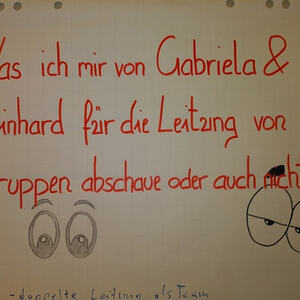 as ich mir von Gabriela &
inhard für die Leitung von
ruppen abschaue oder auch nicht
- doppelte Leitung als Team